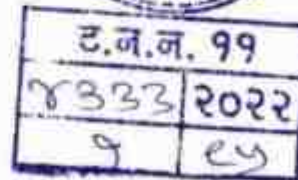 ट.न.न. ११
४३३३ २०२२
१ ९५